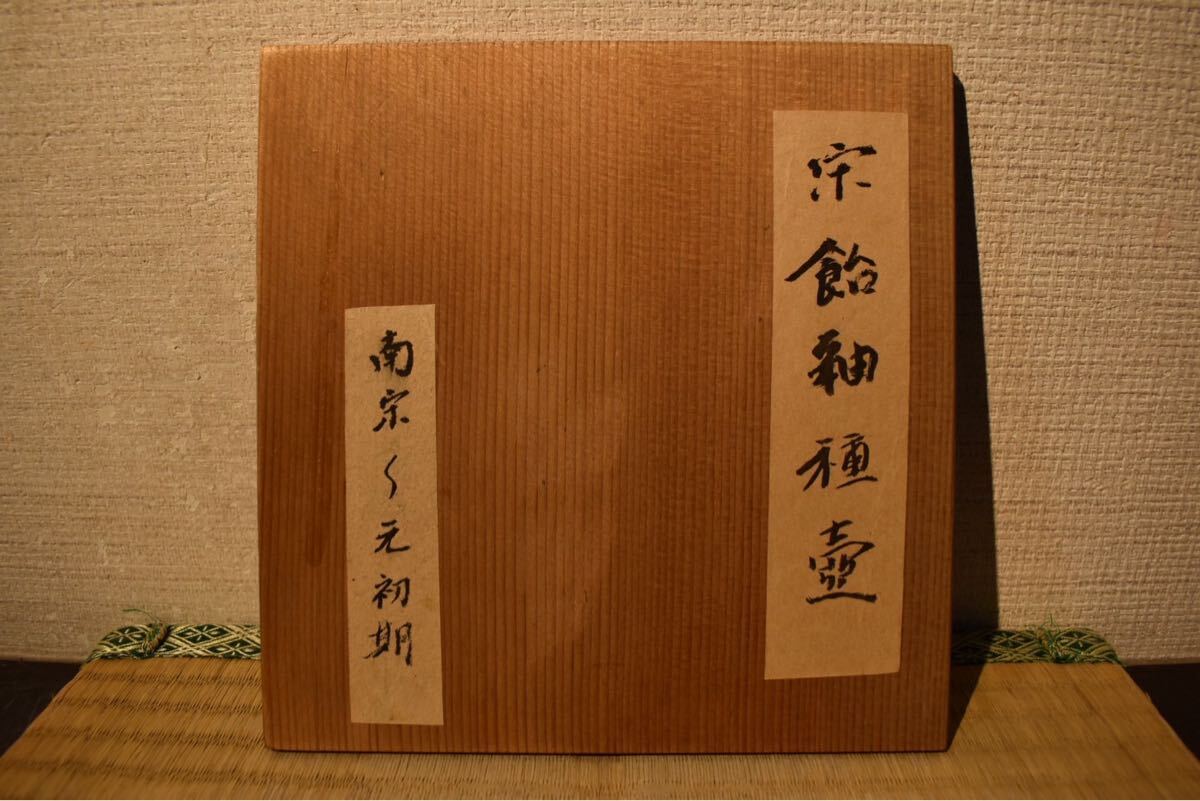 宋飴釉種壺
南宋〜元初期